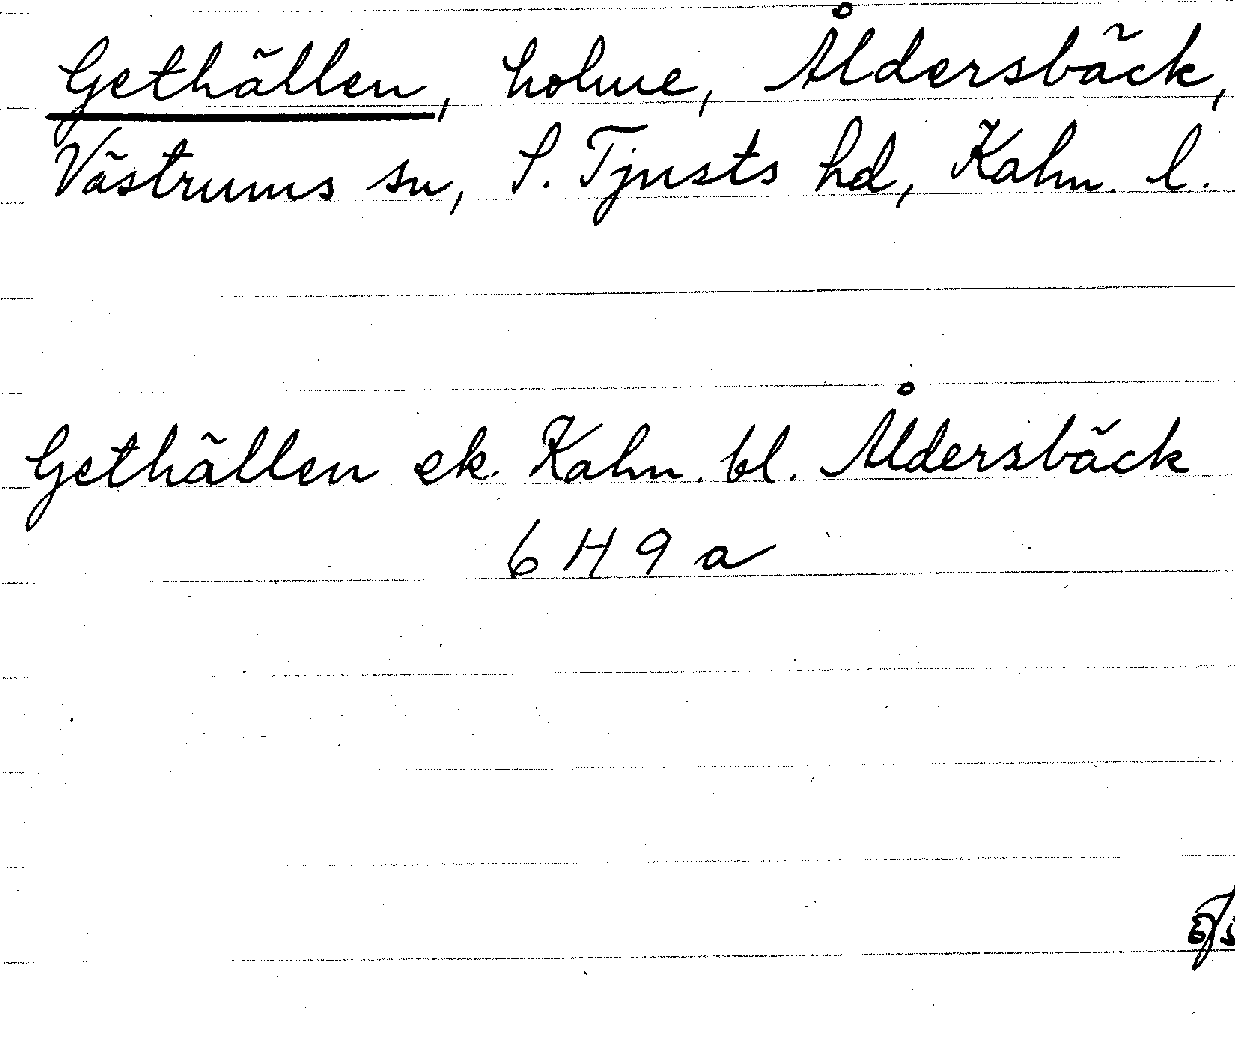 Gethällen, holme, Åldersbäck,
Västrums sn, S. Tjusts hd, Kalm. l.
Gethällen ek. Kalm. bl. Åldersbäck
6 H 9 a